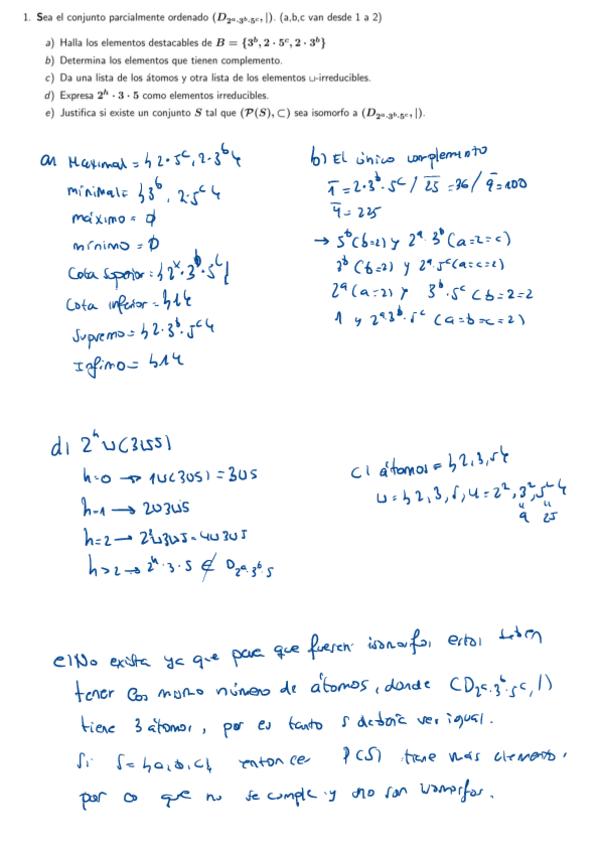 1. Sea el conjunto parcialmente ordenado (D_{2^a·3^b·5^c}, |). (a,b,c van desde 1 a 2)
a) Halla los elementos destacables de B = {3^b, 2 · 5^c, 2 · 3^b}
b) Determina los elementos que tienen complemento.
c) Da una lista de los átomos y otra lista de los elementos ⊔-irreducibles.
d) Expresa 2^h · 3 · 5 como elementos irreducibles.
e) Justifica si existe un conjunto S tal que (P(S), ⊂) sea isomorfo a (D_{2^a·3^b·5^c}, |).
a) Maximal = {2·5^c, 2·3^b}
minimal = {3^b, 2·5^c}
máximo = ∅
mínimo = ∅
Cota superior = {2^x·3^b·5^c}
Cota inferior = {1}
Supremo = {2·3^b·5^c}
Infimo = {1}
b) El único complemento
1̅ = 2·3^b·5^c / 2̅5̅ = 36 / 9̅ = 100
4̅ = 225
→ 5^b (b=2) y 2^a 3^b (a=2=c)
3^b (b=2) y 2^a·5^c (a=c=2)
2^a (a=2) y 3^b·5^c (b=2=2
1 y 2^a 3^b·5^c (a=b=c=2)
d) 2^h ∪ (3∪5)
h=0 → 1∪(3∪5) = 3∪5
h=1 → 2∪3∪5
h=2 → 2²∪3∪5 = 4∪3∪5
h>2 → 2^h·3·5 ∉ D_{2^a·3^b·5}
c) átomos = {2,3,5}
∪ = {2,3,5,4=2²,3²,5²}
9 25
e) No exista ya que para que fuesen isomorfos, estos deben
tener los mismo número de átomos, donde (D_{2^a·3^b·5^c}, |)
tiene 3 átomos, por lo tanto S debería ser igual.
Si S={a,b,c}, entonces P(S) tiene más elementos,
por lo que no se cumple y no son isomorfos.